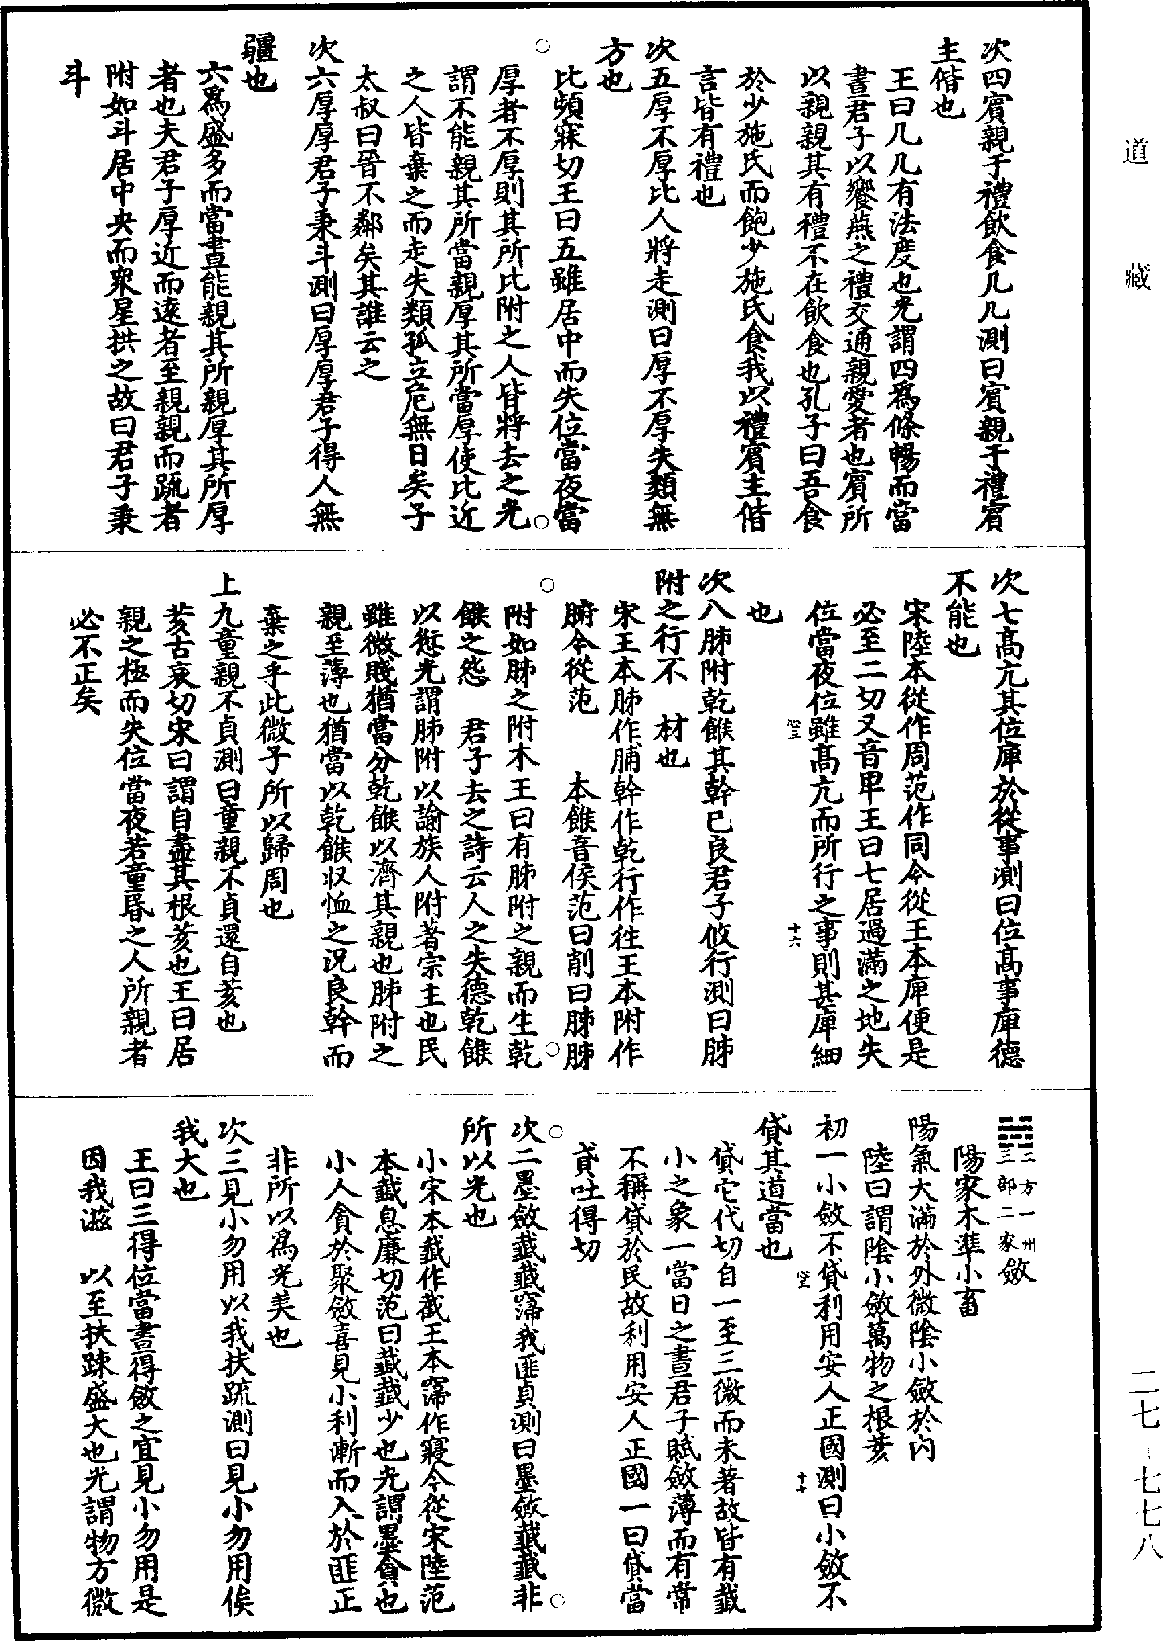 道藏
次四賓親于禮飲食几几測曰賓親于禮賓
主偕也
王曰几几有法度也光謂四爲條暢而當
晝君子以饗燕之禮交通親愛者也賓所
以親親其有禮不在飲食也孔子曰吾食
於少施氏而飽少施氏食我以禮賓主偕
言皆有禮也
次五厚不厚比人將走測曰厚不厚失類無
方也
比頻寐切王曰五雖居中而失位當夜當
厚者不厚則其所比附之人皆將去之光
謂不能親其所當親厚其所當厚使比近
之人皆棄之而走失類孤立危無日矣子
太叔曰晉不鄰矣其誰云之
次六厚厚君子秉斗測曰厚厚君子得人無
疆也
六爲盛多而當晝能親其所親厚其所厚
者也夫君子厚近而遠者至親親而疏者
附如斗居中央而衆星拱之故曰君子秉
斗
次七高亢其位庳於從事測曰位高事庳德
不能也
宋陸本從作周范作同今從王本庳便是
必至二切又音卑王曰七居過滿之地失
位當夜位雖高亢而所行之事則甚庳細
也
次八肺附乾餱其幹已良君子攸行測曰肺
附之行不材也
宋王本肺作脯幹作乾行作往王本附作
腑今從范 本餱音侯范曰削曰肺肺
附如肺之附木王曰有肺附之親而生乾
餱之怨 君子去之詩云人之失德乾餱
以愆光謂肺附以諭族人附著宗主也民
雖微賤猶當分乾餱以濟其親也肺附之
親至薄也猶當以乾餱収恤之況良幹而
棄之乎此微子所以歸周也
上九童親不貞測曰童親不貞還自荄也
荄古哀切宋曰謂自盡其根荄也王曰居
親之極而失位當夜若童昬之人所親者
必不正矣
二方一州
三部二家斂
陽家木準小畜
陽氣大滿於外微陰小斂於內
陸曰謂陰小斂萬物之根荄
初一小斂不貸利用安人正國測曰小斂不
貸其道當也
貸它代切自一至三微而未著故皆有
小之象一當日之晝君子賦斂薄而有常
不稱貸於民故利用安人正國一曰貸當
貣吐得切
次二墨斂䤘䤘寖我匪貞測曰墨斂䤘䤘非
所以光也
小宋本䤘作截王本寖作寢今從宋陸范
本䤘息廉切范曰䤘䤘少也光謂墨貪也
小人貪於聚斂喜見小利漸而入於匪正
非所以爲光美也
次三見小勿用以我扶疏測曰見小勿用俟
我大也
王曰三得位當晝得斂之宜見小勿用是
因我滋 以至扶踈盛大也光謂物方微
二七-七七八